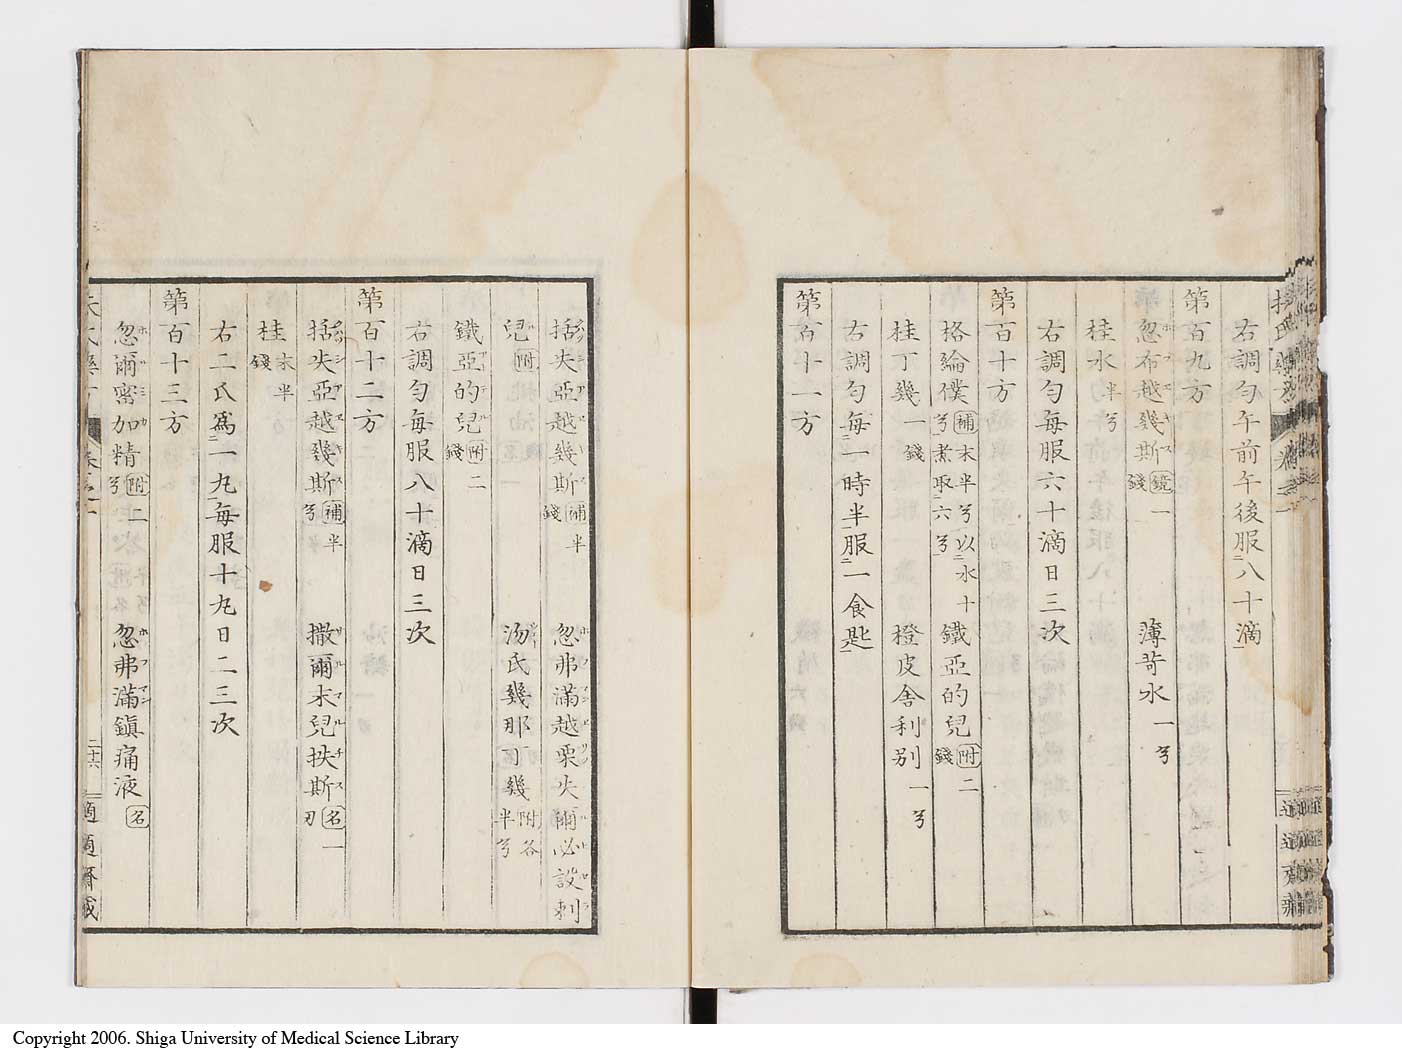 右調勻午前午後服八十滴
第百九方
忽布越幾斯鏡一錢 薄苛水一兮
桂水半兮
右調勻每服六十滴日三次
第百十方
格綸僕補末半兮以水十兮煮取六兮 鐵亞的兒附二錢
桂丁幾一錢 橙皮舍利別一兮
右調勻每一時半服一食匙
第百十一方
括失亞越幾斯補半錢 忽弗滿越栗失爾必設刺
兒附 汤氏幾那丁幾附各半兮
鐵亞的兒附二錢
右調勻每服八十滴日三次
第百十二方
括失亞越幾斯補半兮 撒爾末兒扶斯名一刃
桂末半錢
右二氏爲一丸每服十丸日二三次
第百十三方
忽爾密加精附二兮 忽弗滿鎮痛液名
二十六
適適齋藏
Copyright 2006. Shiga University of Medical Science Library